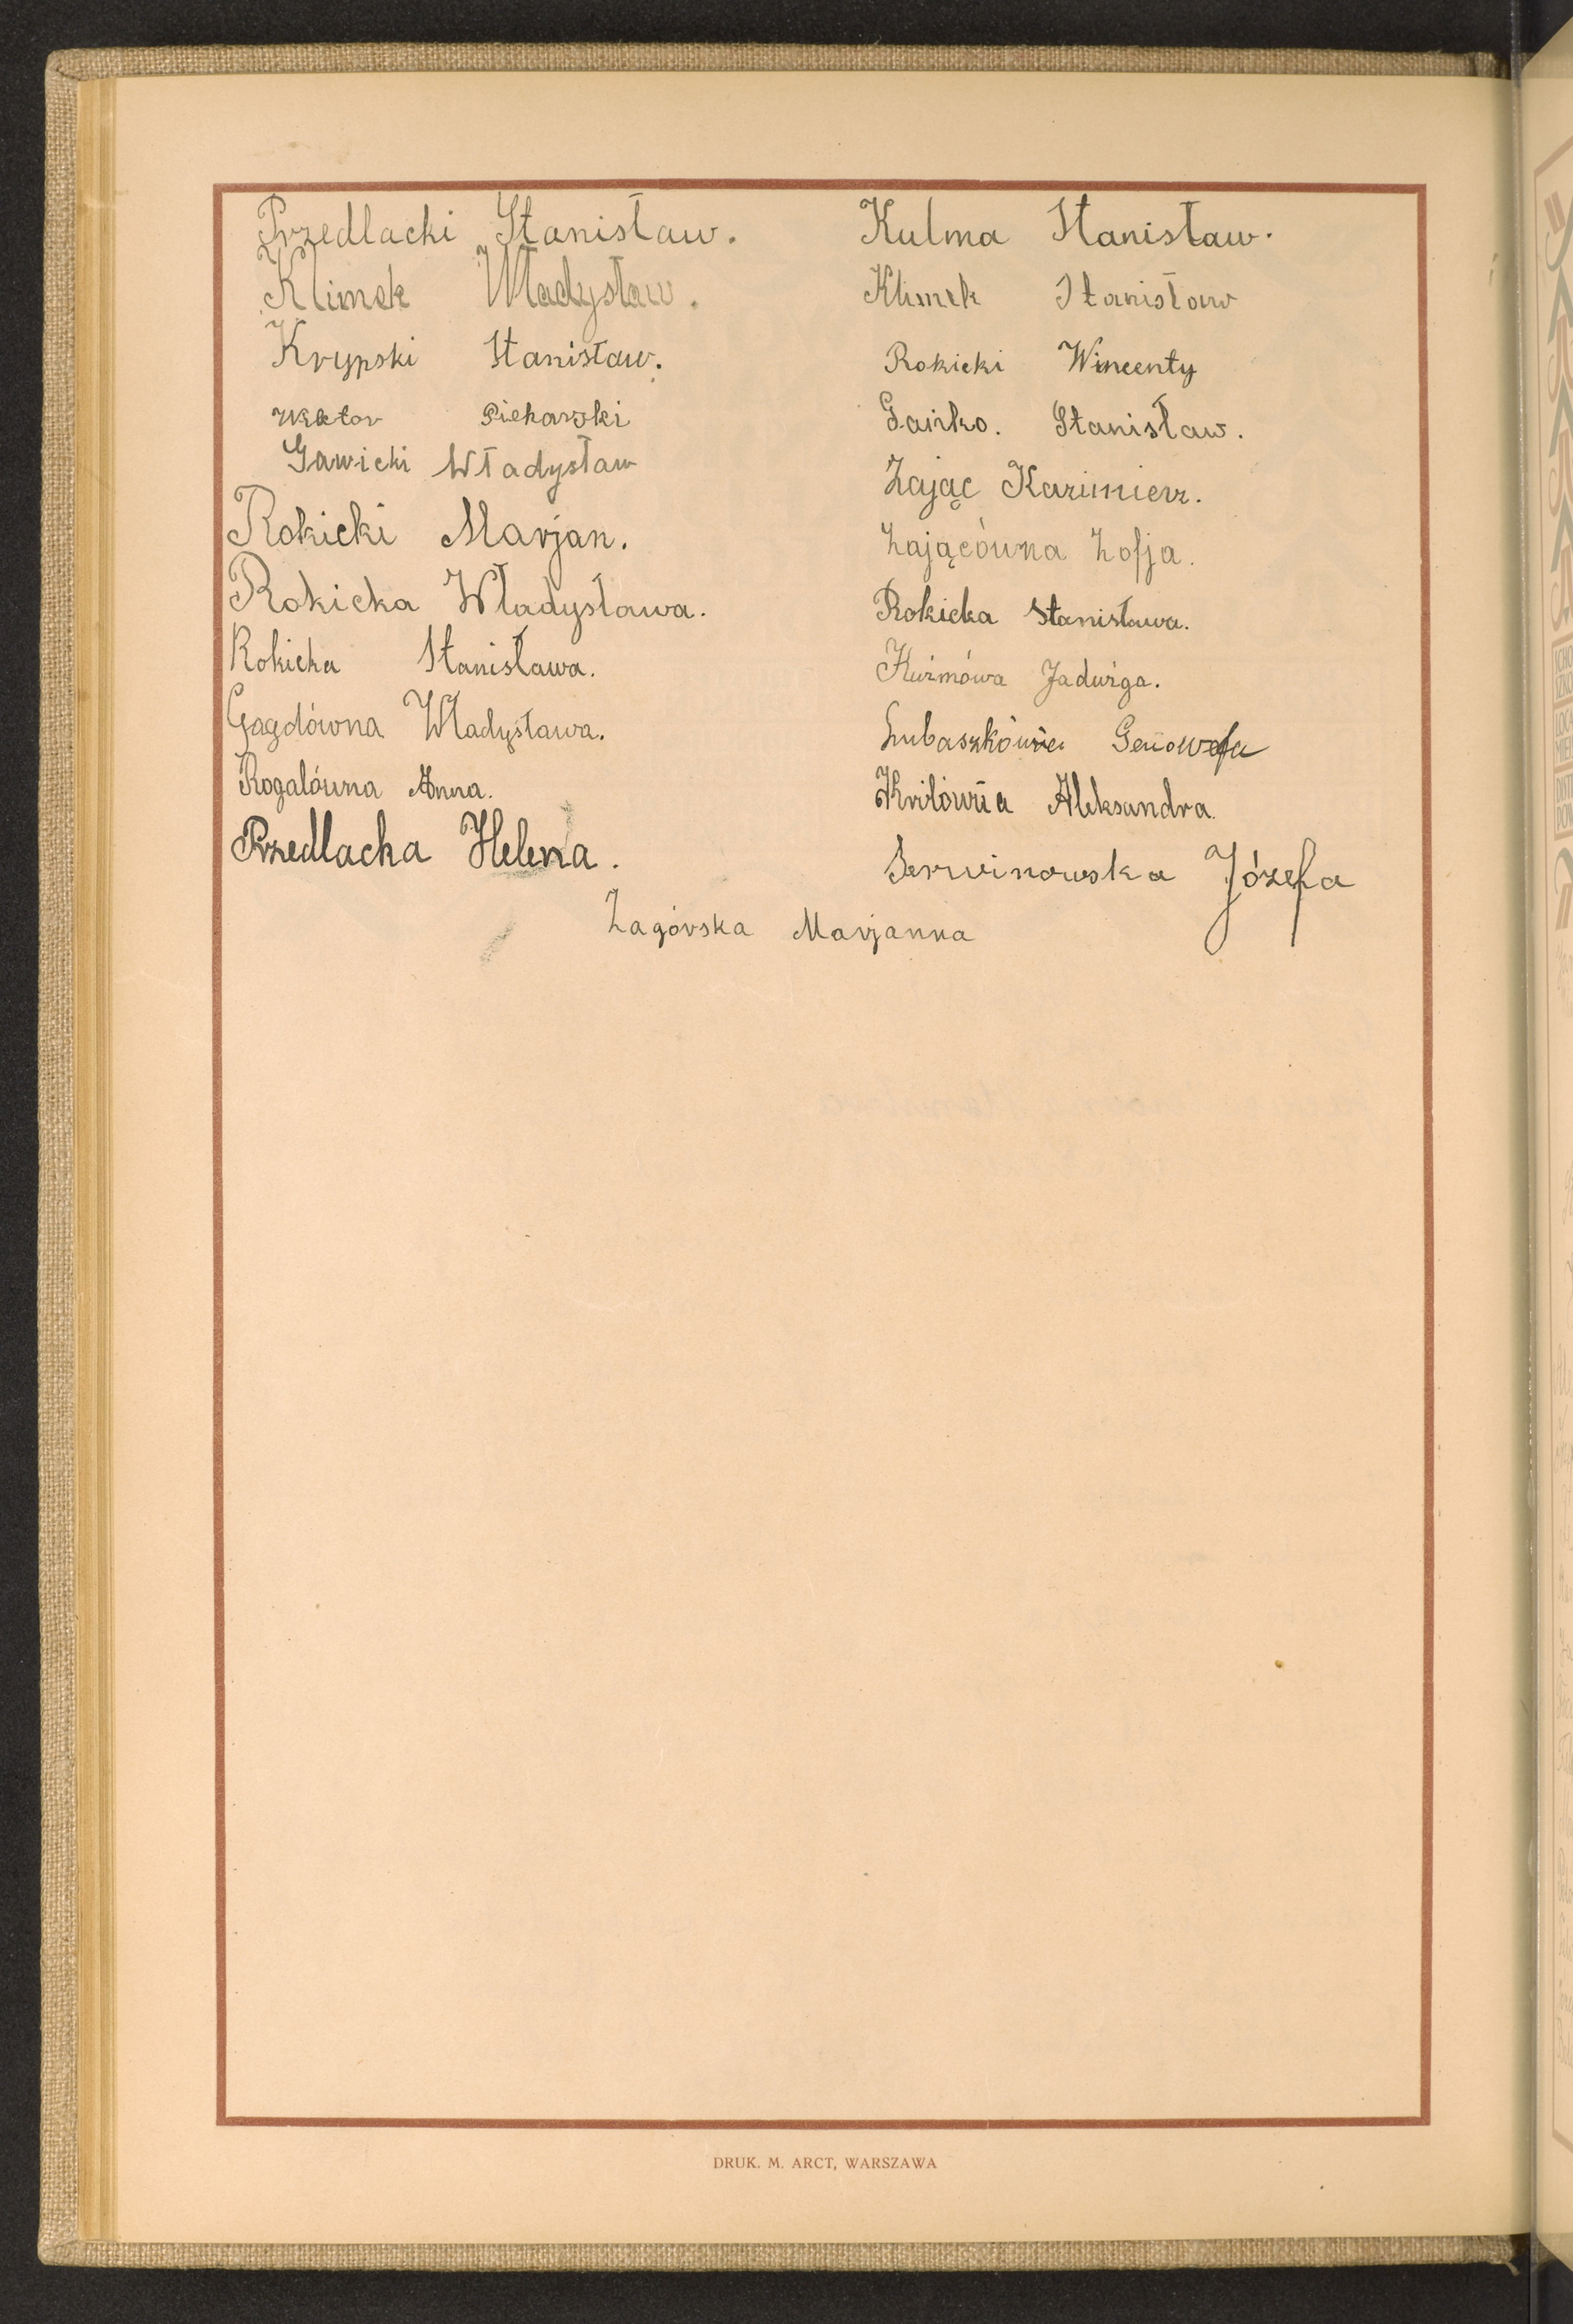 Przedlacki Stanisław.
Klimek Władysław.
Krypski Stanisław.
Wiktor Piekarski
Gawicki Władysław
Rokicki Marjan.
Rokicka Władysława.
Rokicka Stanisława.
Gagdówna Władysława.
Rogalówna Anna.
Przedlacka Helena.
Kulma Stanisław.
Klimek Stanisław
Rokicki Wincenty
Stanisław.
Zając Kazimierz.
Zającówna Zofja.
Rokicka Stanisława.
Kuźmówa Jadwiga.
Genowefa
Aleksandra.
Serwinowska Józefa
Zagórska Marjanna
DRUK. M. ARCT, WARSZAWA